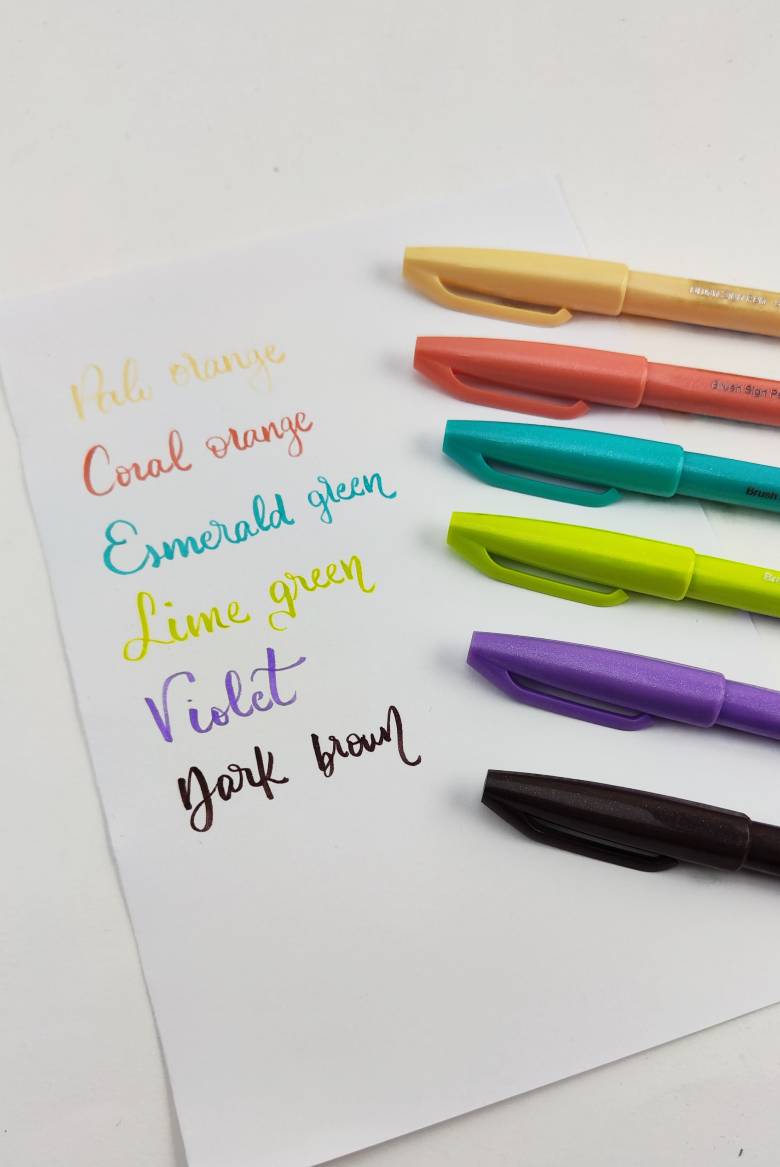 Pale orange
Coral orange
Esmerald green
Lime green
Violet
Dark brown
Brush Sign Pe
Brush